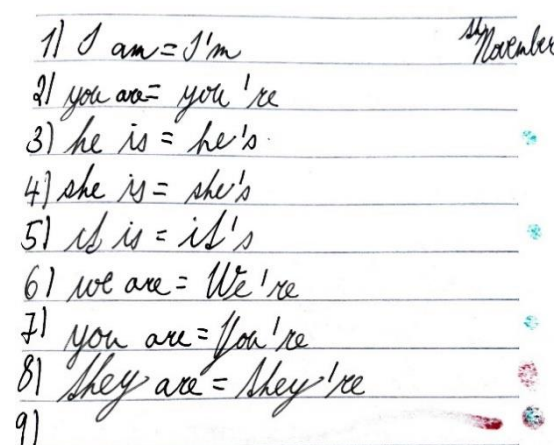 November
1) I am = I'm
2) you are = you're
3) he is = he's.
4) she is = she's
5) it is = it's
6) we are = We're
7) you are = You're
8) they are = they're
9)